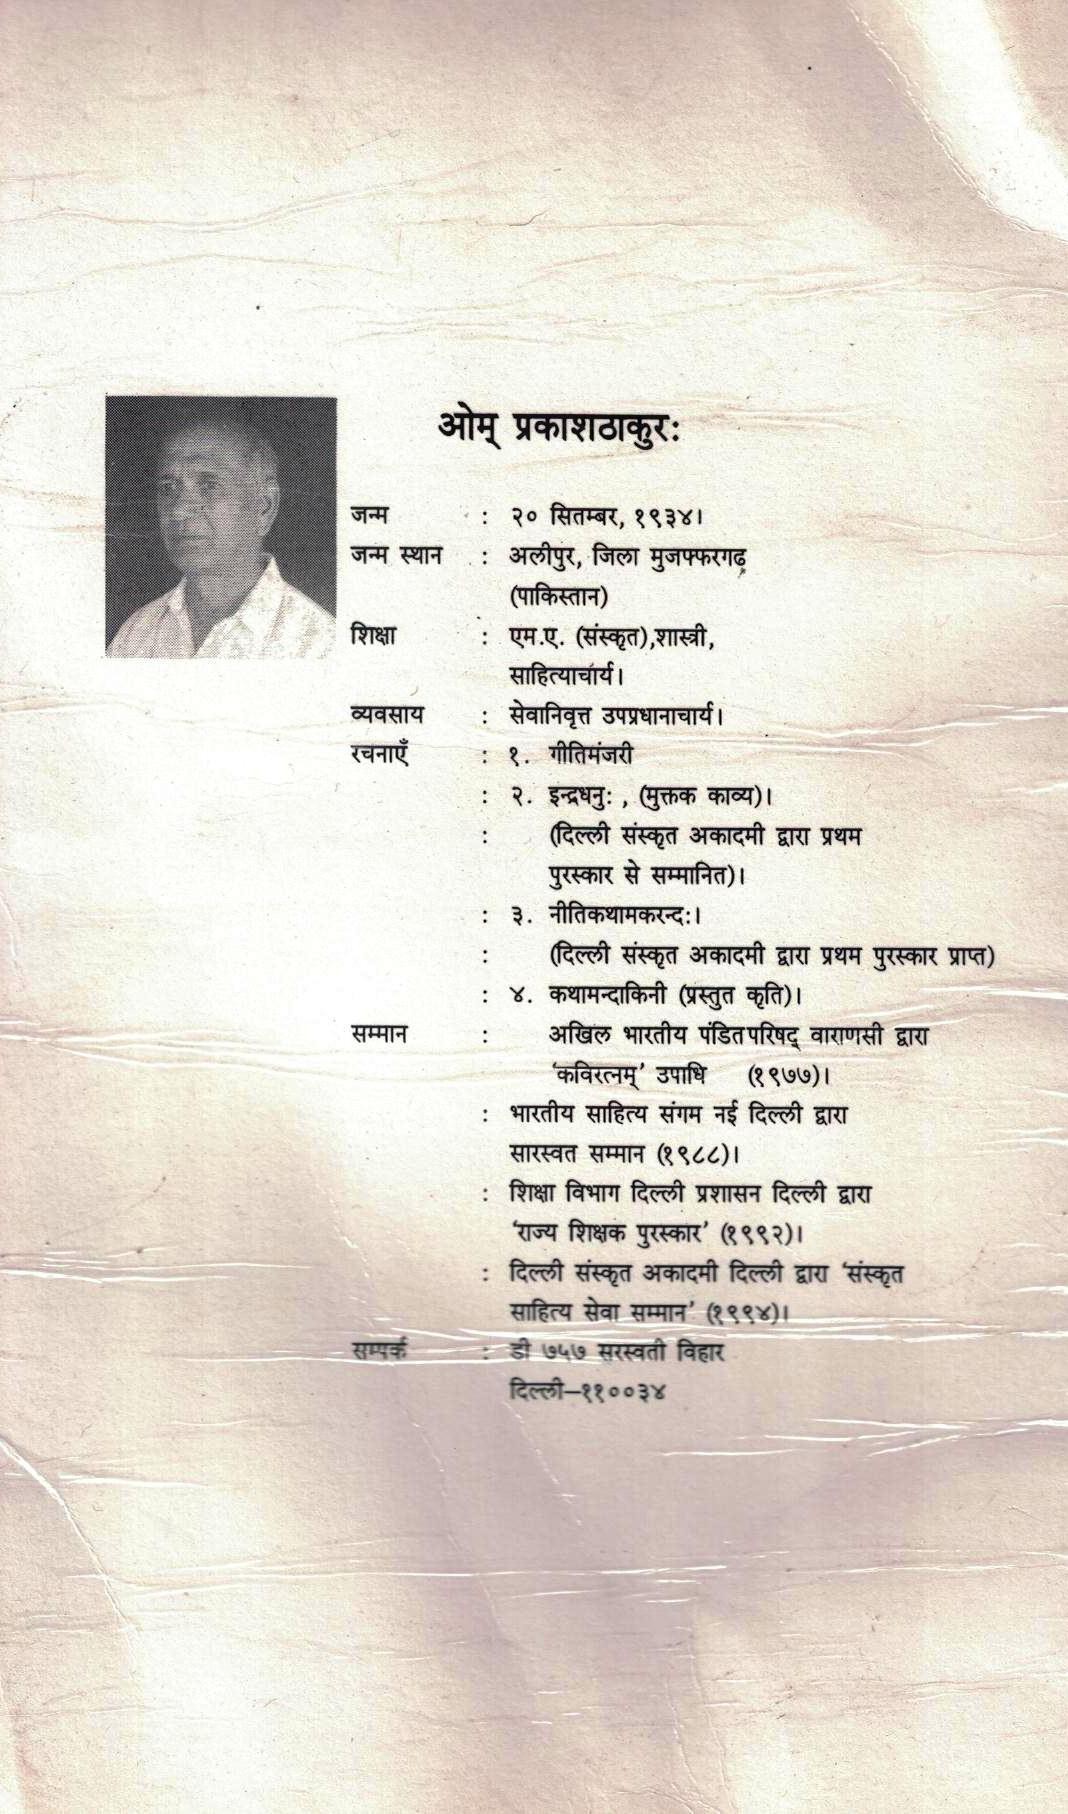 ओम् प्रकाशठाकुरः
जन्म : २० सितम्बर, १९३४।
जन्म स्थान : अलीपुर, जिला मुजफ्फरगढ़
(पाकिस्तान)
शिक्षा : एम.ए. (संस्कृत),शास्त्री,
साहित्याचार्य।
व्यवसाय : सेवानिवृत्त उपप्रधानाचार्य।
रचनाएँ : १. गीतिमंजरी
: २. इन्द्रधनुः , (मुक्तक काव्य)।
: (दिल्ली संस्कृत अकादमी द्वारा प्रथम
पुरस्कार से सम्मानित)।
: ३. नीतिकथामकरन्दः।
: (दिल्ली संस्कृत अकादमी द्वारा प्रथम पुरस्कार प्राप्त)
: ४. कथामन्दाकिनी (प्रस्तुत कृति)।
सम्मान : अखिल भारतीय पंडितपरिषद् वाराणसी द्वारा
‘कविरत्नम्’ उपाधि (१९७७)।
: भारतीय साहित्य संगम नई दिल्ली द्वारा
सारस्वत सम्मान (१९८८)।
: शिक्षा विभाग दिल्ली प्रशासन दिल्ली द्वारा
‘राज्य शिक्षक पुरस्कार’ (१९९२)।
: दिल्ली संस्कृत अकादमी दिल्ली द्वारा ‘संस्कृत
साहित्य सेवा सम्मान’ (१९९४)।
सम्पर्क : डी ७५७ सरस्वती विहार
दिल्ली–११००३४